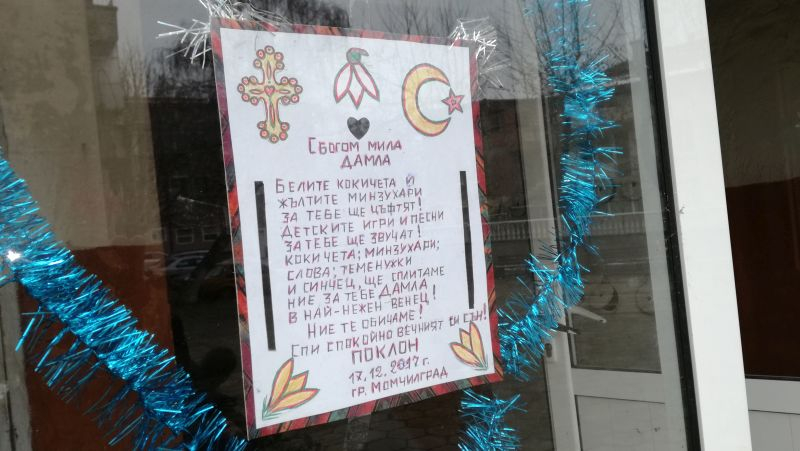 Сбогом мила
Дамла
Белите кокичета и
жълтите минзухари
за тебе ще цъфтят!
Детските игри и песни
за тебе ще звучат!
кокичета; минзухари;
слова; теменужки
и синчец, ще сплитаме
ние за тебе Дамла
в най-нежен венец!
Ние те обичаме!
Спи спокойно вечният си сън!
ПОКЛОН
17.12.2017 г.
гр. Момчилград